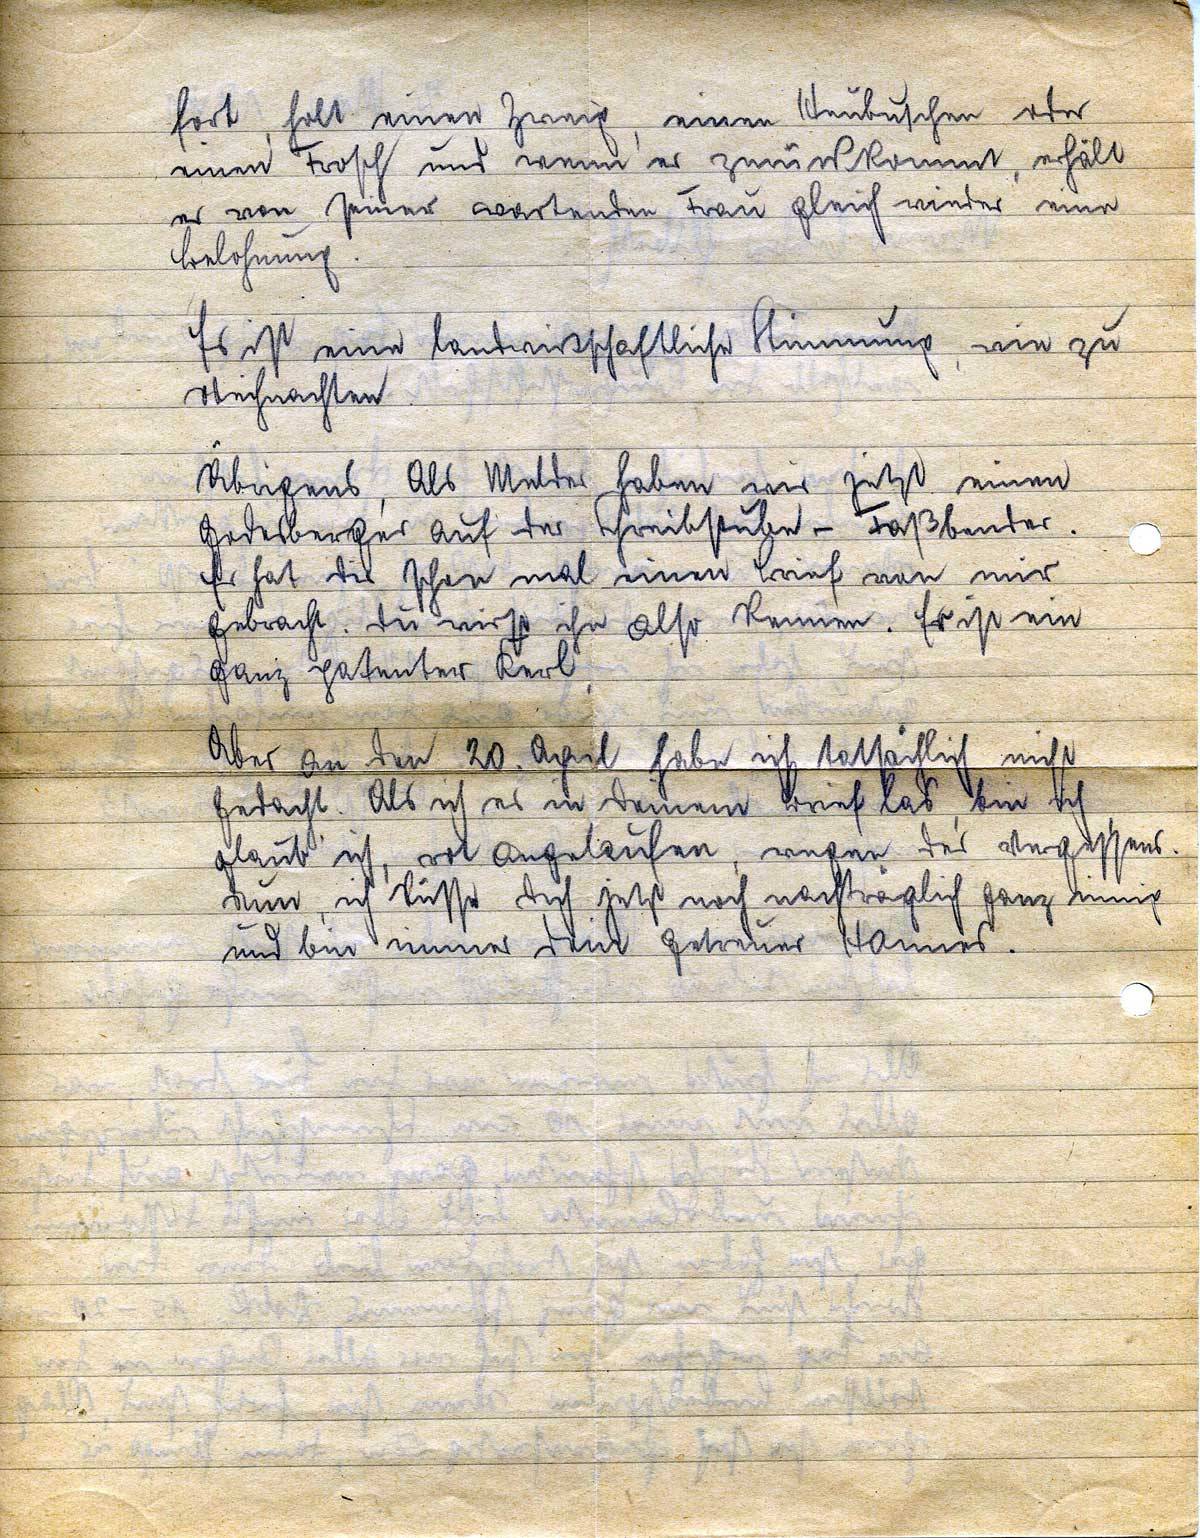 fort, holt einen Zweig, einen Heubuschen oder
einen Frosch und wenn er zurückkommt, erhält
er von seiner wartenden Frau gleich wieder eine
Belohnung.
Es ist eine landwirtschaftliche Stimmung, wie zu
Weihnachten.
Übrigens, Als Melder haben wir jetzt einen
Godesberger auf der Schreibstube – Faßbender.
Er hat dir schon mal einen Brief von mir
gebracht. Du wirst ihn also kennen. Er ist ein
ganz patenter Kerl.
Aber an den 20. April habe ich tatsächlich nicht
gedacht. Als ich es in Deinem Brief las, bin ich
glaub' ich, rot angelaufen, wegen des Vergessens.
Nun, ich küsse Dich jetzt noch nachträglich ganz innig
und bin immer dein getreuer Hannes.